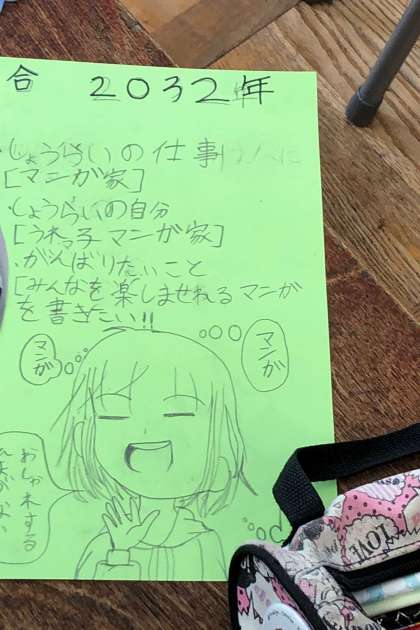 合 2032年
・しょうらいの仕事
[マンが家]
・しょうらいの自分
[うれっ子マンが家]
・がんばりたいこと
[みんなを楽しませれるマンが
を書きたい!!
マンガ
マンが
おしゃ木する
LOVE